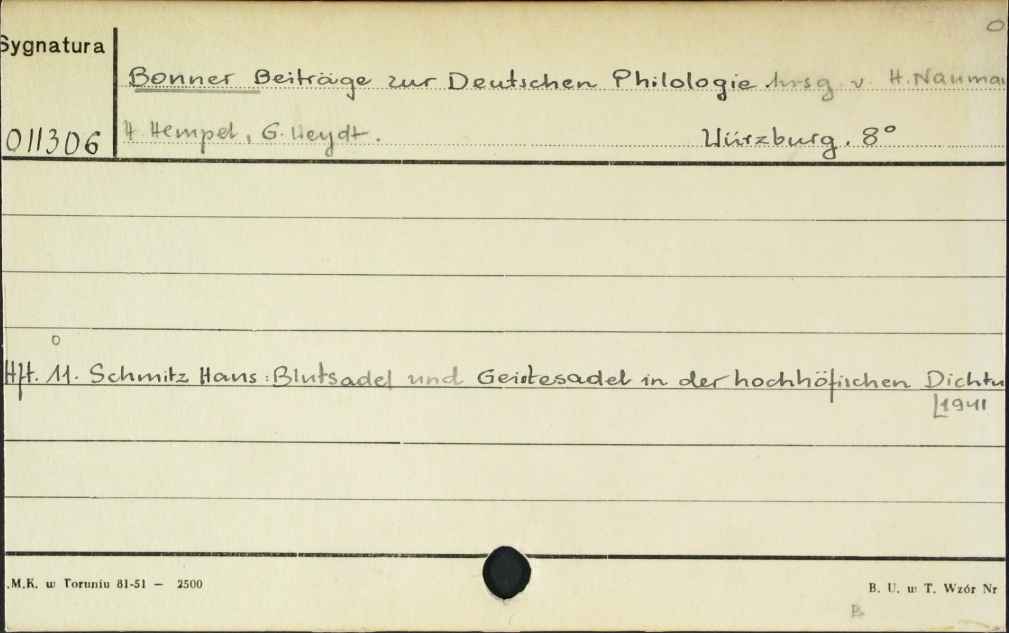 0
Sygnatura
Bonner Beiträge zur Deutschen Philologie hrsg. v. H. Nauma
011306
H. Hempel, G. Weydt.
Würzburg. 8°
0
Hft. 11. Schmitz Hans: Blutsadel und Geistesadel in der hochhöfischen Dichtu
[1941
.M.K. w Toruniu 81-51 — 2500
B. U. w T. Wzór Nr
B